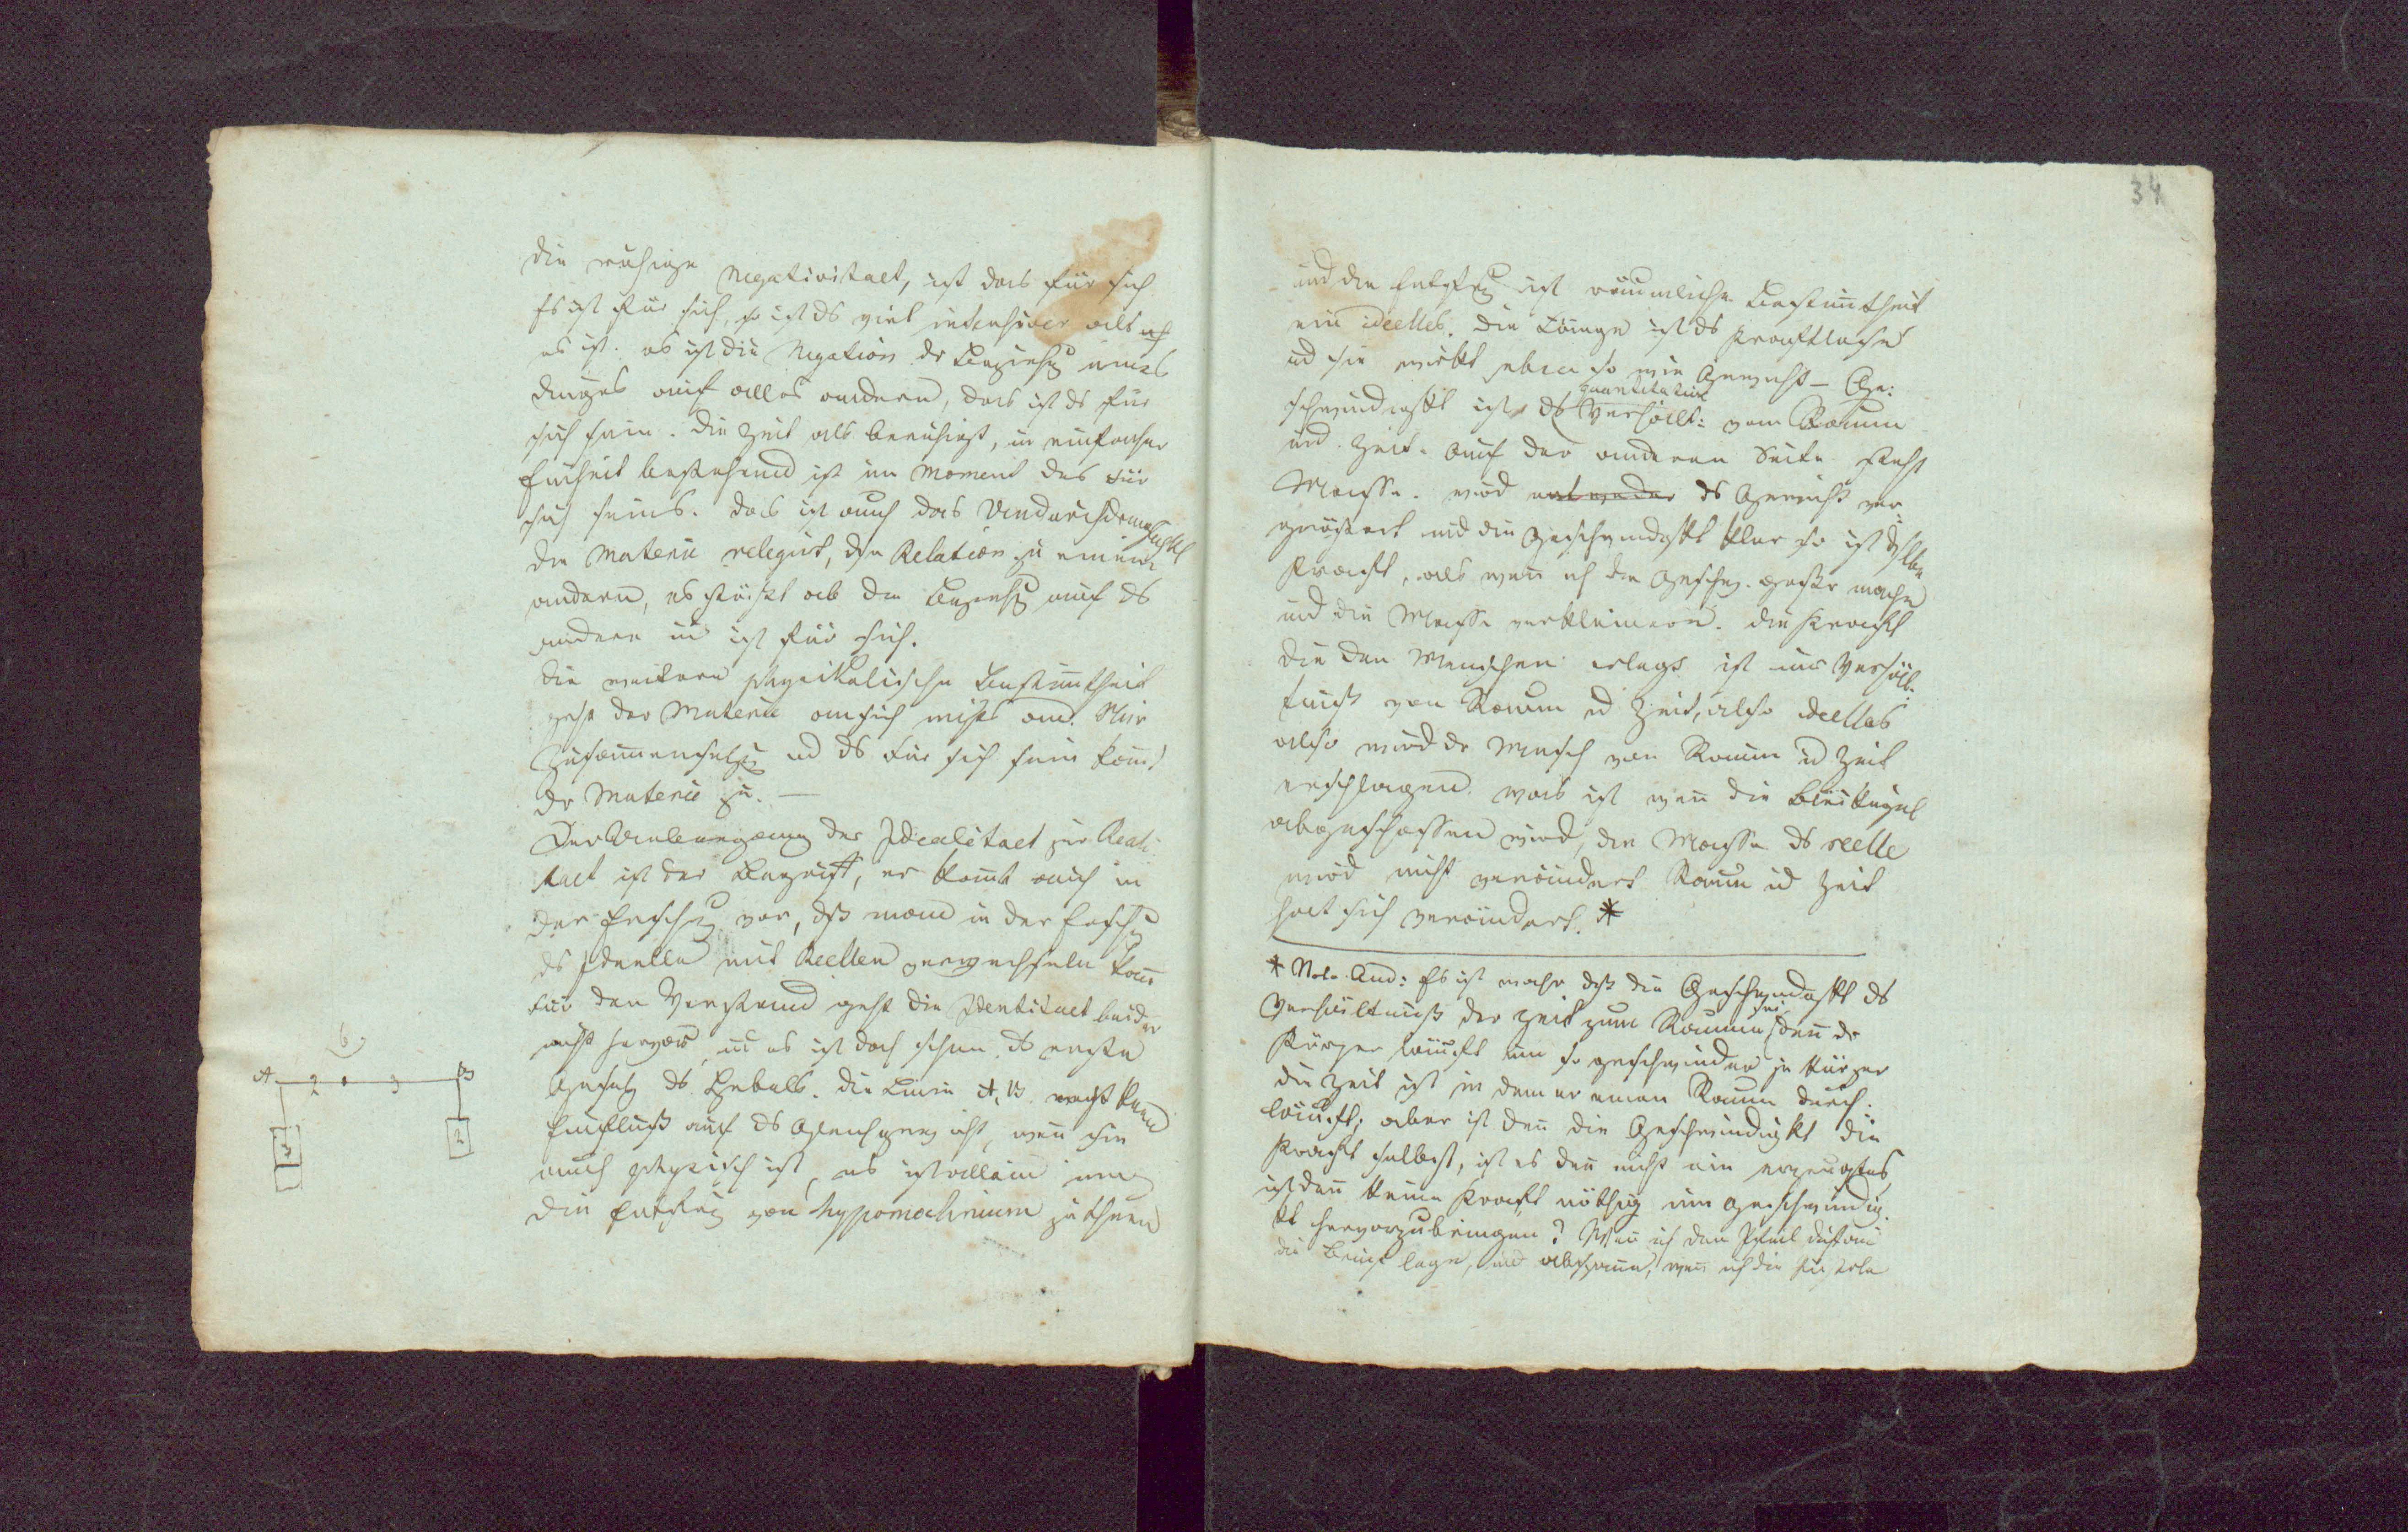 die ruhige Negativitaet, ist das für sich
Es ist für sich, so ist ds viel intensiver als
es ist. es ist die Negation der Beziehg eines
Dinges auf alles andere, das ist ds für
sich sein. Die Zeit als beruhigt, in einfacher
Einheit bestehend ist im Moment des für
sich seins. das ist auch das Undurchdringlichkt
die Materie relegirt, die Relation zu einem
andern, es stößt ab die Beziehg auf ds
andere u ist für sich.
die weitere physikalische Bestimtheit
geht der Materie ansich nichts an. Nur
Zusammensetzg ud ds für sich sein komt
der Materie zu. —
Der Uebergang der Idealitaet zur Reali
taet ist der Begriff, er komt auch in
der Erfahrg vor, dß man in der Erfahrg
ds Ideelle mit Reellen verwechseln kan
für den Verstand geht die Identitaet beider
nicht hervor, u es ist doch schon ds erste
Gesetz ds Hebels. die Linie A, B macht keinen
Einfluß auf ds Gleichgewicht, wen sie
auch physisch ist, es ist allein um
die Entferng vom hypomochlium zu thuen
6.
A 2 3 B
3
2
34
und die Entferng ist räumliche Bestimtheit
ein ideelles. die Länge ist ds Kraftlose
ud sie wirkt eben so wie Gewicht — Ge:
schwindigkt ist ds quantitative Verhält: vom Raum
und Zeit. auf der anderen Seite steht
Masse. wird entweder ds Gewicht ver
größert und die Geschwindigkt klar so ist dselbe
Kraft, als wen ich die Geschw. größer mache
und die Masse verkleinere. die Kraft
die den Menschen erlegt ist ein Verhält:
tniß von Raum ud Zeit, also ideelles
also wird der Mensch von Raum ud Zeit
erschlagen. was ist wen die Bleikugel
abgeschossen wird, die Masse ds reelle
wird nicht verändert Raum ud Zeit
hat sich verändert. *
* Nota. And: Es ist wahr dß die Geschwindigkt ds
Verhältniß der Zeit zum Raume sei, den der
Körper läuft um so geschwinder je kürzer
die Zeit ist in dem er einen Raum durch:
läuft; aber ist den die Geschwindigkt die
Kraft selbst, ist es den nicht ein erzeugtes,
ist den keine Kraft nöthig um Geschwindig:
kt hervorzubringen? Wen ich den Pfeil auf
die Brust lege, und wen ich die Pistole